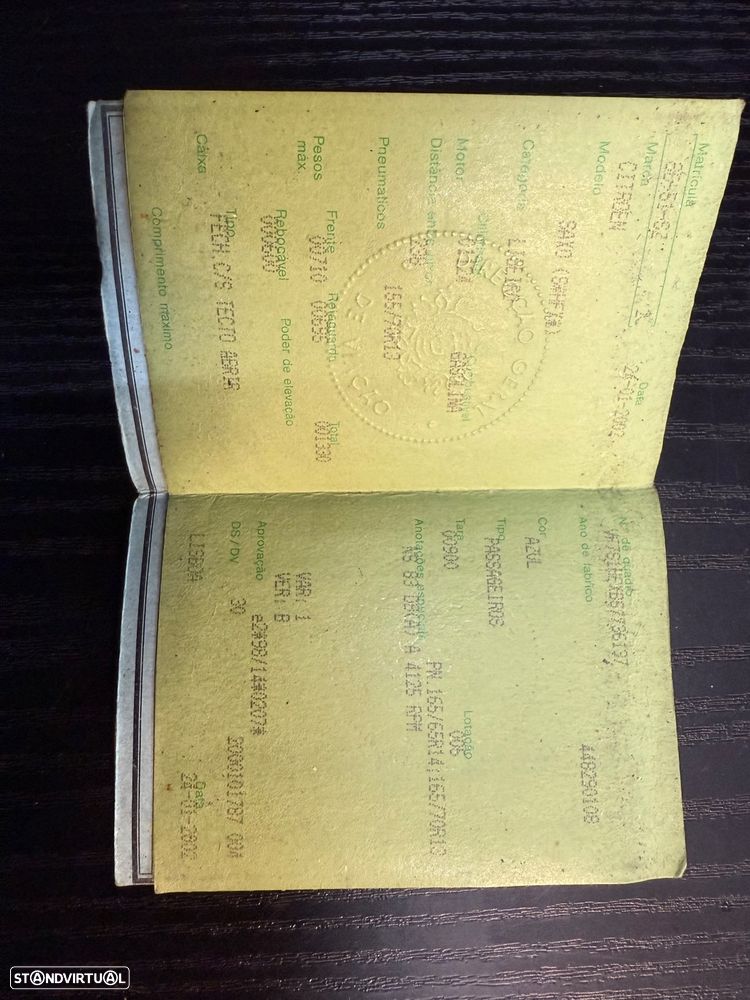 Matrícula
Data
24-01-2002
Marca
CITROEN
Modelo
SAXO (S*HFX*)
Categoria
LIGEIRO
Motor
Cilindrada
01124
Combustível
GASOLINA
Distância entre eixos
Pneumáticos
155/70R13
Pesos máx.
Frente
00710
Retaguarda
00695
Total
001330
Rebocável
Poder de elevação
Caixa
Tipo
FECH.C/S TECTO ABRIR
Comprimento máximo
DIRECÇÃO GERAL DE VIAÇÃO
N.º de quadro
Ano de fabrico
448290108
Cor
AZUL
Tipo
PASSAGEIROS
Tara
00900
Lotação
005
Anotações especiais
PN.165/65R14;165/70R13
NS 83 DB(A) A 4125 RPM
VAR: 1
VER: B
Aprovação
e2*98/14*0207*
DS/DV
30
2000101787 004
LISBOA
Data
24-01-2002
STANDVIRTUAL